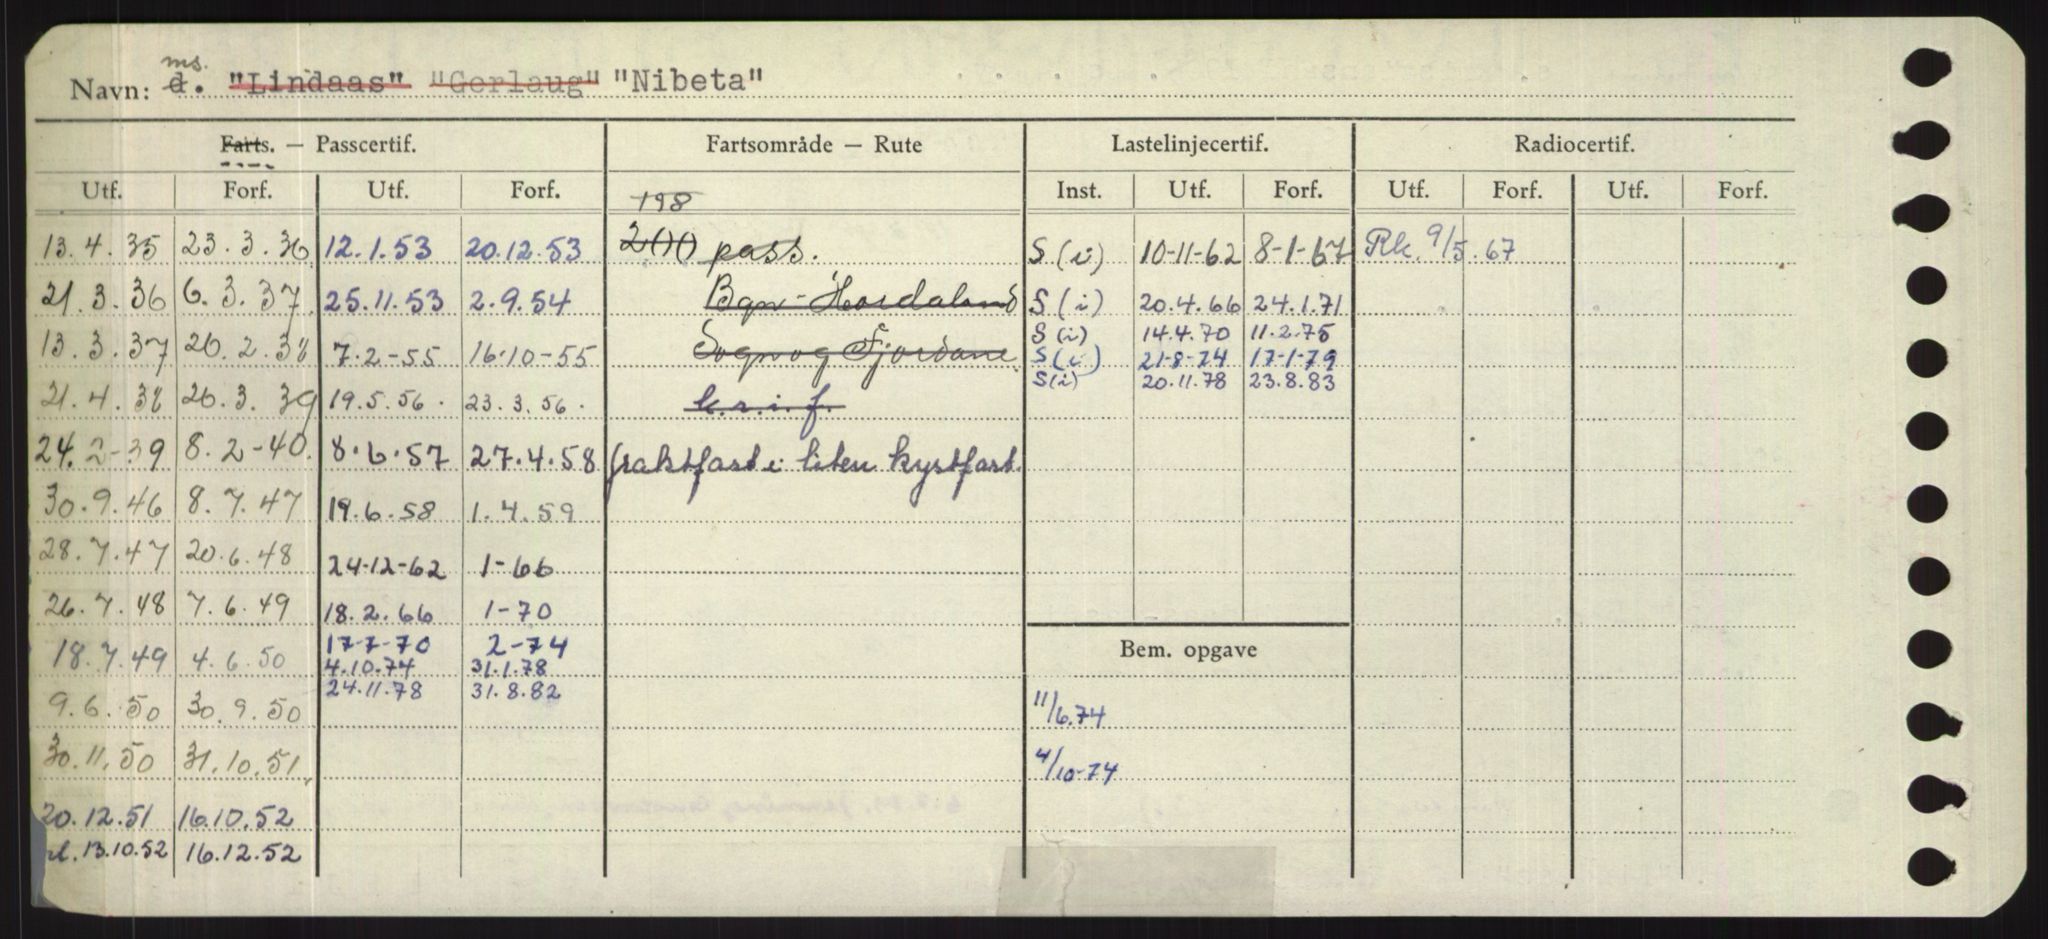 ms.
Navn: d. "Lindaas" "Gerlaug" "Nibeta"
Farts. — Passcertif. Fartsområde — Rute Lastelinjecertif. Radiocertif.
Utf. Forf. Utf. Forf. Inst. Utf. Forf. Utf. Forf. Utf. Forf.
198
13.4.35 23.3.36 12.1.53 20.12.53 200 pass. S(i) 10-11-62 8-1-67 Rk. 9/5.67
21.3.36 6.3.37 25.11.53 2.9.54 Bgn-Hordaland S(i) 20.4.66 24.1.71
S(i) 14.4.70 11.2.75
13.3.37 26.2.38 7.2-55 16.10-55 Sogn og Fjordane S(i) 21-8-74 17-1-79
S(i) 20.11.78 23.8.83
21.4.38 26.3.39 19.5.56. 23.3.56. k.r.i.f.
24.2-39 8.2-40. 8.6.57 27.4.58 fraktfart i liten kystfart.
30.9.46 8.7.47 19.6.58 1.4.59
28.7.47 20.6.48 24-12-62 1-66
26.7.48 7.6.49 18.2.66 1-70
17-7-70 2-74
18.7.49 4.6.50 4.10.74 31.1.78 Bem. opgave
24.11.78 31.8.82
9.6.50 30.9.50 11/6.74
30.11.50 31.10.51. 4/10-74
20.12.51 16.10.52
13.10.52 16.12.52